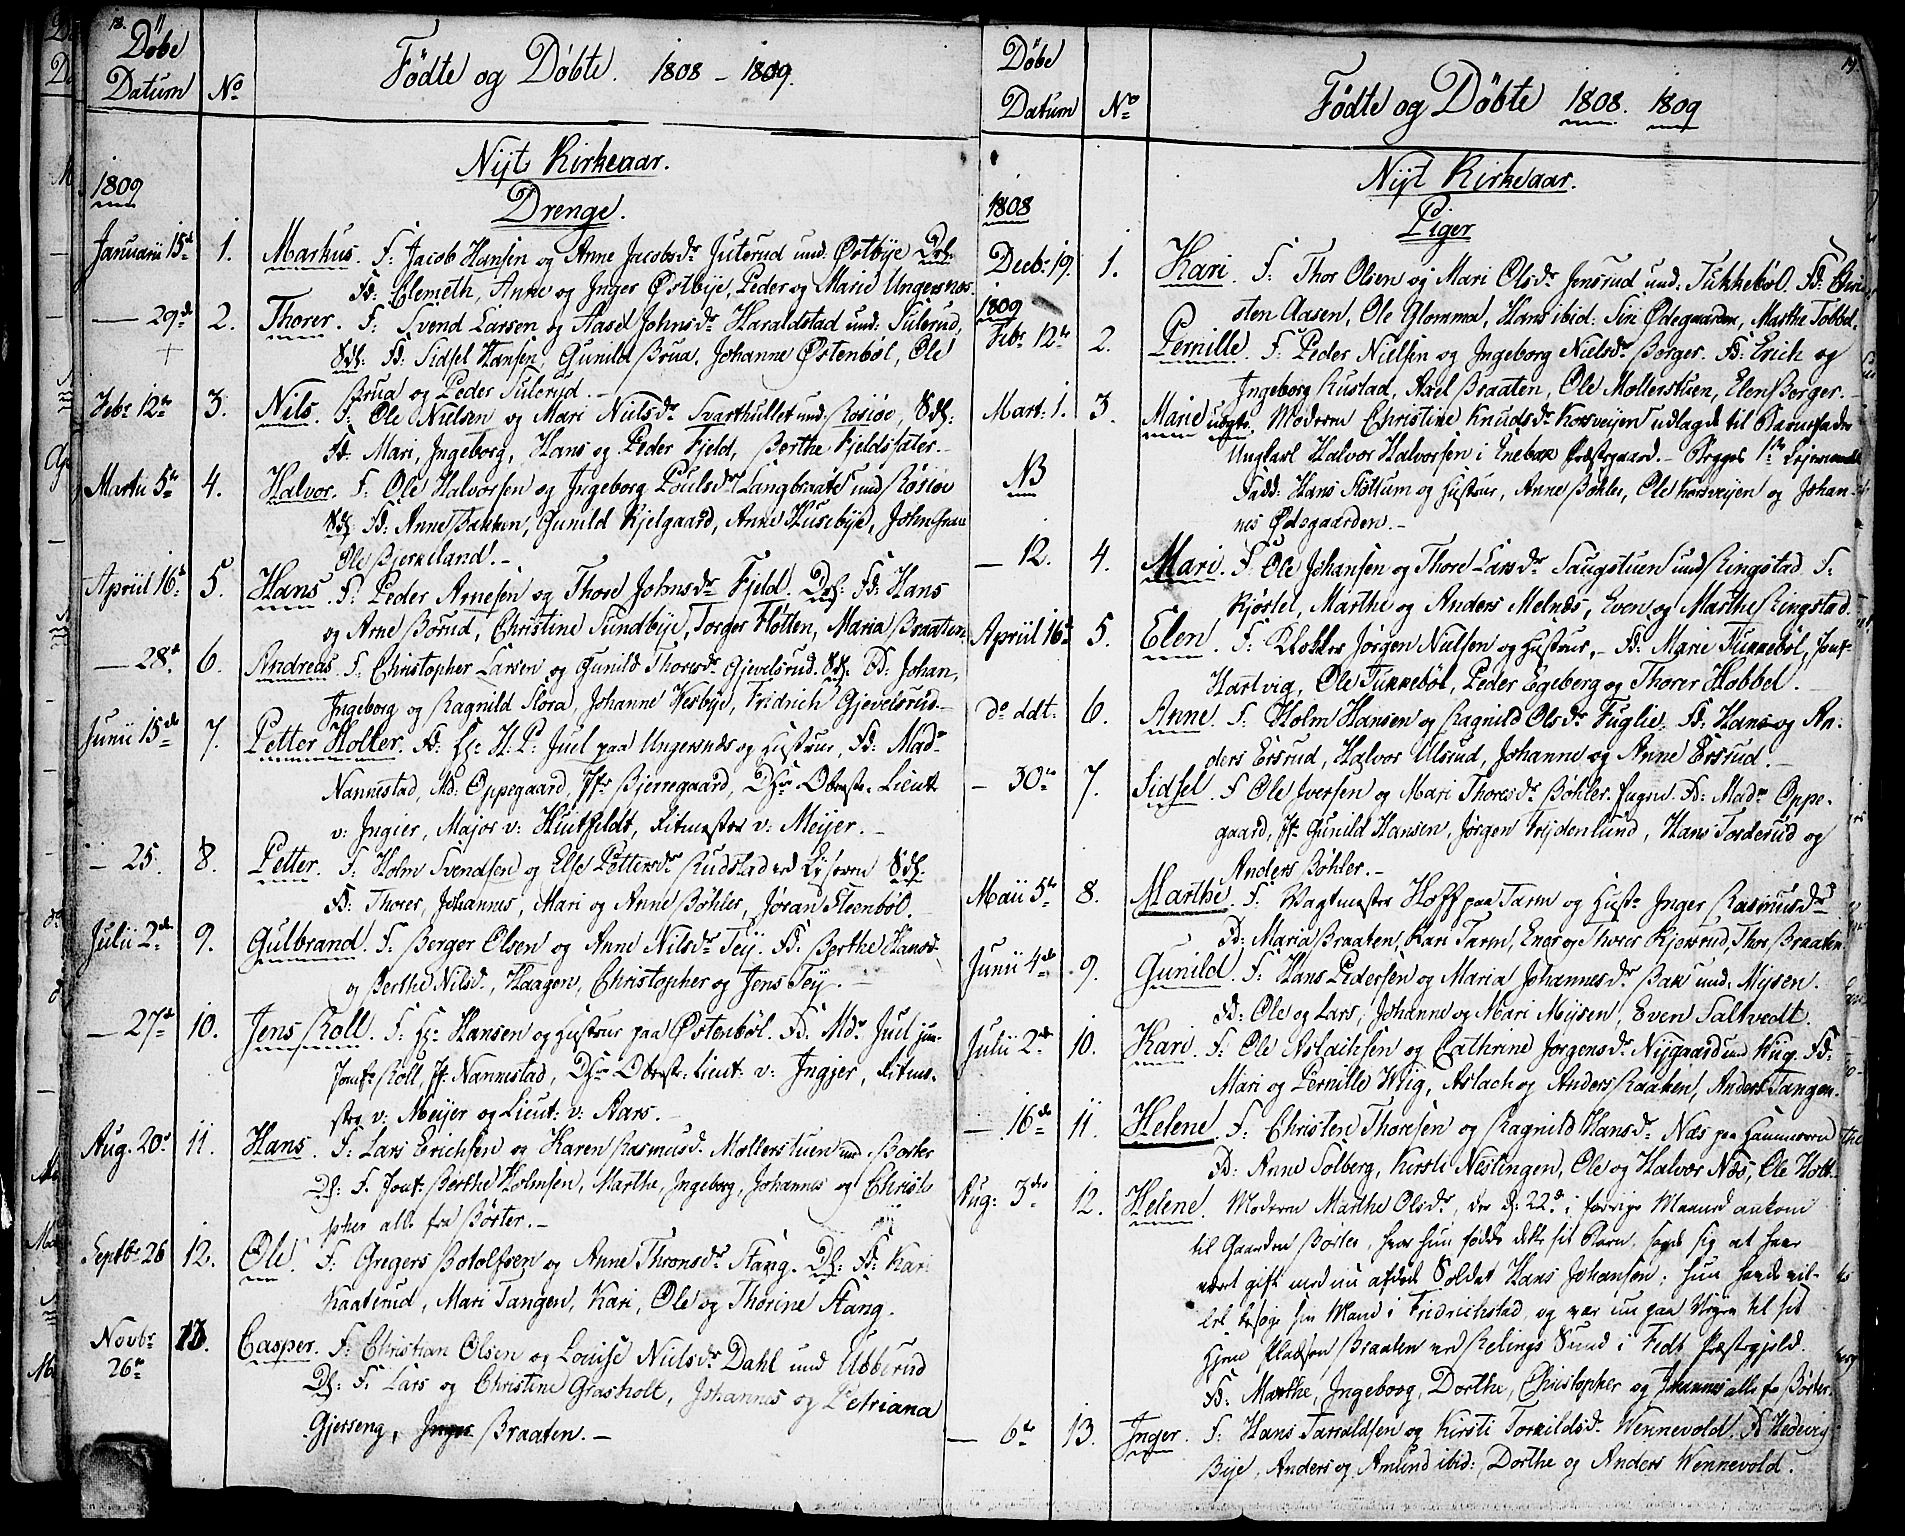 18.
Döbe
Datum
No
Födte og Döbte. 1808 - 1809.
Nyt Kirkeaar.
Drenge.
1809
Januarii 15de 1. Markus. F: Jacob Hansen og Anne Jacobsdr Juterud und Østbye Dr:
Fd: Clemeth, Anne og Inger Østbye, Peder og Marie Ungersnæs.
— 29de 2. Thorer. F: Svend Larsen og Aasel Johnsdr Haraldstad und: Tulerud,
Fd: Sidsel Hansen, Gunild Brua, Johanne Østenböl, Ole
Brua og Peder Tulerud.
Febr 12te 3. Nils. F: Ole Nielsen og Mari Nielsdr Svarthullet und:
Fd: Mari, Ingeborg, Hans og Peder Fjeld, Berthe Fjeldsæter.
Martii 5te 4. Halvor. F: Ole Halvorsen og Ingeborg Poulsdr Langbraate und
Fd: Anne Bakken, Gunild Kjelgaard, Anne Husebye, John
Ole Bjerkeland.
Apriil 16de 5. Hans. F: Peder Arnesen og Thore Johnsdr Fjeld. Fd: Hans
og Arne Börud, Christine Sundbye, Torger Fløtten, Maria Braaten.
— 28de 6. Andreas. F: Christopher Larsen og Gunild Thoresdr Gjevelsrud. Fd: Johan,
Ingeborg og Ragnild Flora, Johanne Vesbye, Fridrich Gjevelsrud
Junii 15de 7. Petter Holter. Fd: Hr: H: P: Juel paa Ungersnæs og Hustrue, Fd: Madm
Nannestad, Md: Oppegaard, Jfr Bjerregaard, Oberste-Lieut
v: Ingier, Major v: Huitfeldt, Ritmester v: Meijer.
— 25. 8. Petter. F: Holm Svendsen og Else Pettersdr Rudstad
Fd: Thorer, Johannes, Mari og Anne Böhler, Jöran Steenböl.
Julii 2de 9. Gulbrand. F: Berger Olsen og Anne Nilsdr Tey. Fd: Berthe Hansd
og Berthe Nilsdr, Haagen, Christopher og Jens Tey.
— 27de 10. Jens Roll. F: Hr: Hansen og Hustrue paa Østenböl. Fd: Mdm Juel jun
Jomfr Roll, Jf: Nannestad, Oberst-Lieut: v: Ingjer, Ritme-
ster v: Meijer og Lieut: v: Aars.
Aug. 20de 11. Hans. F: Lars Erichsen og Karen Rasmusd. Mollerstuen und Börter
F. Jomf: Berthe Holmsen, Marthe, Ingeborg, Johannes og Christo
pher alle fra Börter.
Septbr 26 12. Ole. F: Gregers Botolfsen og Anne Thronsdr Stang. Fd: Kari
Kaaterud, Mari Tangen, Kari, Ole og Thorine Stang.
Novbr 26de 13. Casper. F: Christian Olsen og Louise Nielsdr Dahl und Ubberud
F: Lars og Christine Grasholt, Johannes og Petriana
Gjerseng, Inger Braaten.
19.
Döbe
Datum
No
Födte og Döbte 1808. 1809
Nyt Kirkeaar.
Piger
1808
Decbr 19. 1. Kari. F: Thor Olsen og Mari Olsdr Jensrud und: Tukkeböl. Fd: Chri
sten Aasen, Ole Glomma, Hans ibid: Siri Ødegaarden, Marthe Tobbel.
1809
Febr 12te 2. Pernille. F: Peder Nielsen og Ingeborg Nielsdr Borger. Fd: Erich og
Ingeborg Rustad, Axel Braaten, Ole Mollerstuen, Elen Borger.
Mart: 1. 3. Marie uægte. Moderen Christine Knudsdr Korsveyen udlagde til Barnefader
NB
Ungkarl Halvor Halvorsen i Enebak Præstegaard. Begges 1te Leiermaal
Fadd: Hans Flottum og Hustrue, Anne Böhler, Ole Korsveyen og Johan-
nes Ødegaarden.
— 12. 4. Mari. F: Ole Johansen og Thore Larsdr Saugstuen und Ringstad F:
Kjöstel, Marthe og Anders Melnæs, Even og Marthe Ringstad.
Apriil 16de 5. Elen. F: Klokker Jörgen Nielsen og Hustrue. Fd: Marie Tukkeböl, Jomf
Hartvig, Ole Tukkeböl, Peder Egeberg og Thorer Hobbel.
do ddt. 6. Anne. F: Holm Hansen og Ragnild Olsdr Fuglie. Fd: Hans og An-
ders Ersrud, Halvor Ulsrud, Johanne og Anne Ersrud.
— 30te 7. Sidsel. F Ole Iversen og Mari Thoresdr Böhler. Fd: Madm Oppe-
gaard, Jf: Gunild Hansen, Jörgen Frydenlund, Hans Torderud og
Anders Böhler.
Maii 5te 8. Marthe. F: Vagtmester Hoff paa Tarm og Hustr Inger Rasmusdr
Fd: Maria Braaten, Kari Tarm, Ener og Thorer Kjersrud, Thor Braaten.
Junii 4de 9. Gunild. F: Hans Pedersen og Maria Johannesdr Bak und: Mysen.
Fd: Ole og Lars, Johanne og Mari Mysen, Even Saltvedt.
Julii 2de 10. Kari. F: Ole Aslachsen og Cathrine Jorgensdr Nygaard und Wiig. Fd:
Mari og Pernille Wiig, Aslach og Anders Raaken, Anders Tangen.
— 16de 11. Helene. F: Christen Thoresen og Ragnild Hansdr Næs paa Hammeren
Fd: Anne Solberg, Kirsti Neslingen, Ole og Halvor Næs, Ole Holt
Aug: 3de 12. Helene. Moderen Marthe Olsdr, der d: 22de i forrige Maaned ankom
til Gaarden Börter, hvor hun födde dette sit Barn, sagde sig at have
været gift med nu afdöde Soldat Hans Johansen; hun havde vil-
let besöge sin Mand i Fridrichstad, og var nu paa Veyen til sit
Hjem Pladsen Braaten ved Relings Sund i Fedt Præstegjeld.
Fd: Marthe, Ingeborg, Dorthe, Christopher og Johannes alle fr Börter.
— 6te 13. Inger. F: Hans Taraldsen og Kirsti Torkildsdr Wennevold. Fd Hedevig
Bye, Anders og Amund ibid:, Dorthe og Anders Wennevold.